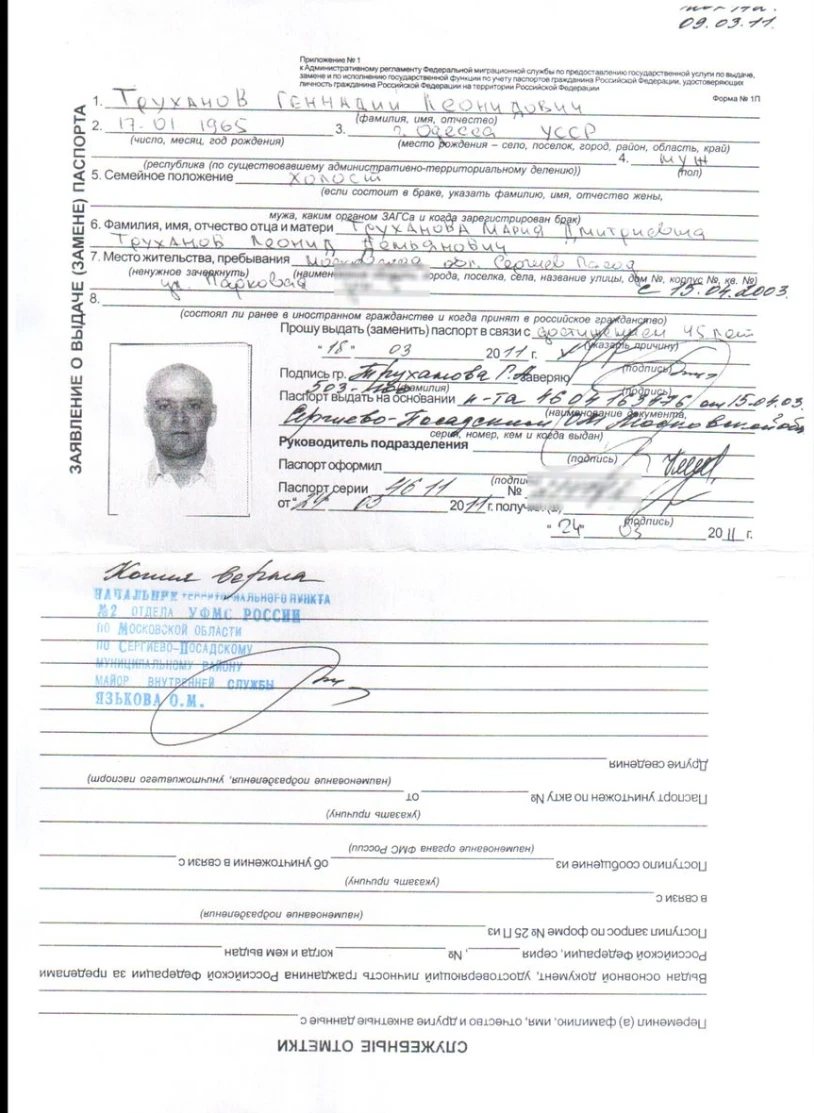 09.03.11.
Приложение № 1
к Административному регламенту Федеральной миграционной службы по предоставлению государственной услуги по выдаче,
замене и по исполнению государственной функции по учету паспортов гражданина Российской Федерации, удостоверяющих
личность гражданина Российской Федерации на территории Российской Федерации
Форма № 1П
ЗАЯВЛЕНИЕ О ВЫДАЧЕ (ЗАМЕНЕ) ПАСПОРТА
1. Труханов Геннадий Леонидович
(фамилия, имя, отчество)
2. 17.01 1965 3. г. Одесса УССР
(число, месяц, год рождения) (место рождения – село, поселок, город, район, область, край)
4. муж
(республика (по существовавшему административно-территориальному делению)) (пол)
5. Семейное положение холост
(если состоит в браке, указать фамилию, имя, отчество жены,
мужа, каким органом ЗАГСа и когда зарегистрирован брак)
6. Фамилия, имя, отчество отца и матери Труханова Мария Дмитриевна
Труханов Леонид Демьянович
7. Место жительства, пребывания Московская обл. Сергиев Посад
(ненужное зачеркнуть) города, поселка, села, название улицы, дом №, корпус №, кв. №)
ул. Парковая с 15.04.2003.
8.
(состоял ли ранее в иностранном гражданстве и когда принят в российское гражданство)
Прошу выдать (заменить) паспорт в связи с достижением 45 лет
(указать причину)
"18" 03 2011 г.
(подпись)
Подпись гр. Труханова Г.Л. заверяю
(фамилия) (подпись)
Паспорт выдать на основании п-та 46 04 163476 от 15.04.03.
(наименование документа,
Сергиево-Посадским ОМ Московской обл
серия, номер, кем и когда выдан)
Руководитель подразделения
(подпись)
Паспорт оформил
Паспорт серии 46 11 №
от "24" 03 2011 г. получил(а)
(подпись)
"24" 03 2011 г.
Копия верна
НАЧАЛЬНИК ТЕРРИТОРИАЛЬНОГО ПУНКТА
№2 ОТДЕЛА УФМС РОССИИ
ПО МОСКОВСКОЙ ОБЛАСТИ
ПО СЕРГИЕВО-ПОСАДСКОМУ
МУНИЦИПАЛЬНОМУ РАЙОНУ
МАЙОР ВНУТРЕННЕЙ СЛУЖБЫ
ЯЗЬКОВА О.М.
СЛУЖЕБНЫЕ ОТМЕТКИ
Переменил (а) фамилию, имя, отчество и другие анкетные данные с
Выдан основной документ, удостоверяющий личность гражданина Российской Федерации за пределами
Российской Федерации, серия , № когда и кем выдан
Поступил запрос по форме № 25 П из
(наименование подразделения)
в связи с
(указать причину)
Поступило сообщение из об уничтожении в связи с
(наименование органа ФМС России)
(указать причину)
Паспорт уничтожен по акту № от
(наименование подразделения, уничтожившего паспорт)
Другие сведения